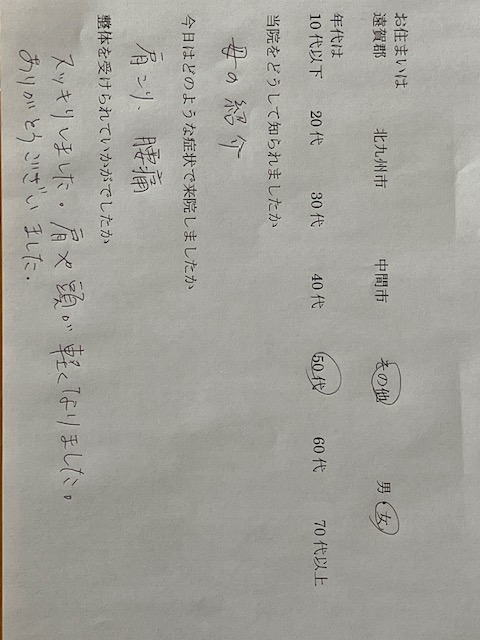 お住まいは
遠賀郡　北九州市　中間市　その他　男　女
年代は
10代以下　20代　30代　40代　50代　60代　70代以上
当院をどうして知られましたか
母の紹介
今日はどのような症状で来院しましたか
肩こり、腰痛
整体を受けられていかがでしたか
スッキリしました。肩や頭が軽くなりました。
ありがとうございました。